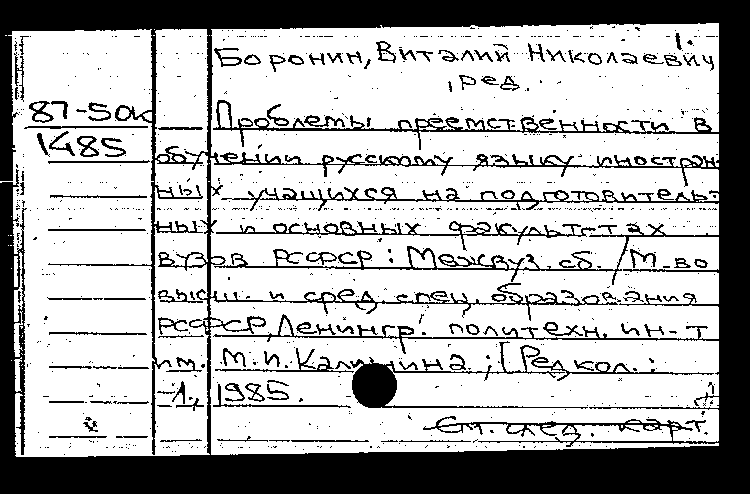 1.
Боронин, Виталий Николаевич
, ред.
87-50к
1485
Проблемы преемственности в
обучении русскому языку иностран-
ных учащихся на подготовитель-
ных и основных факультетах
вузов РСФСР : Межвуз. сб. / М-во
высш. и сред. спец. образования
РСФСР, Ленингр. политехн. ин-т
им. М.И. Калинина ; [Редкол. :
-Л., 1985.
См. след. карт.